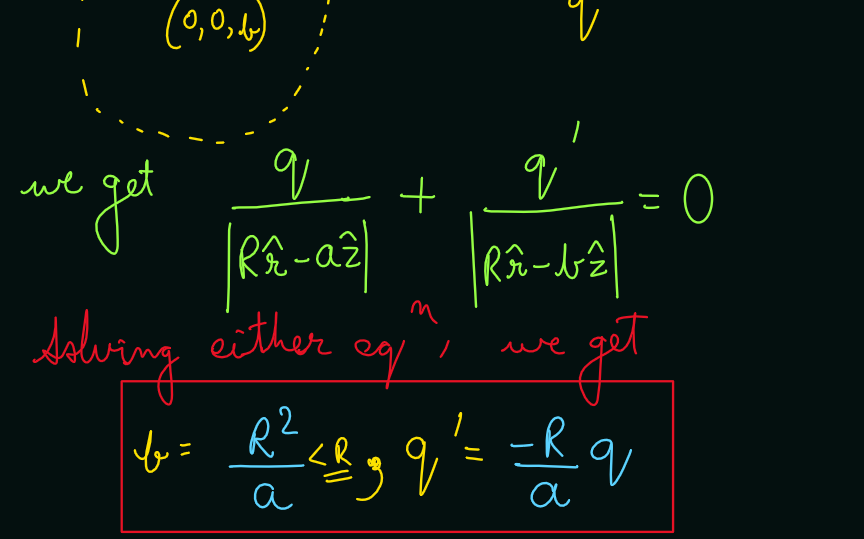 (0,0,b) q
we get q/|Rr̂-aẑ| + q'/|Rr̂-bẑ| = 0
Solving either eqⁿ, we get
b = R²/a < R ; q' = -R/a q